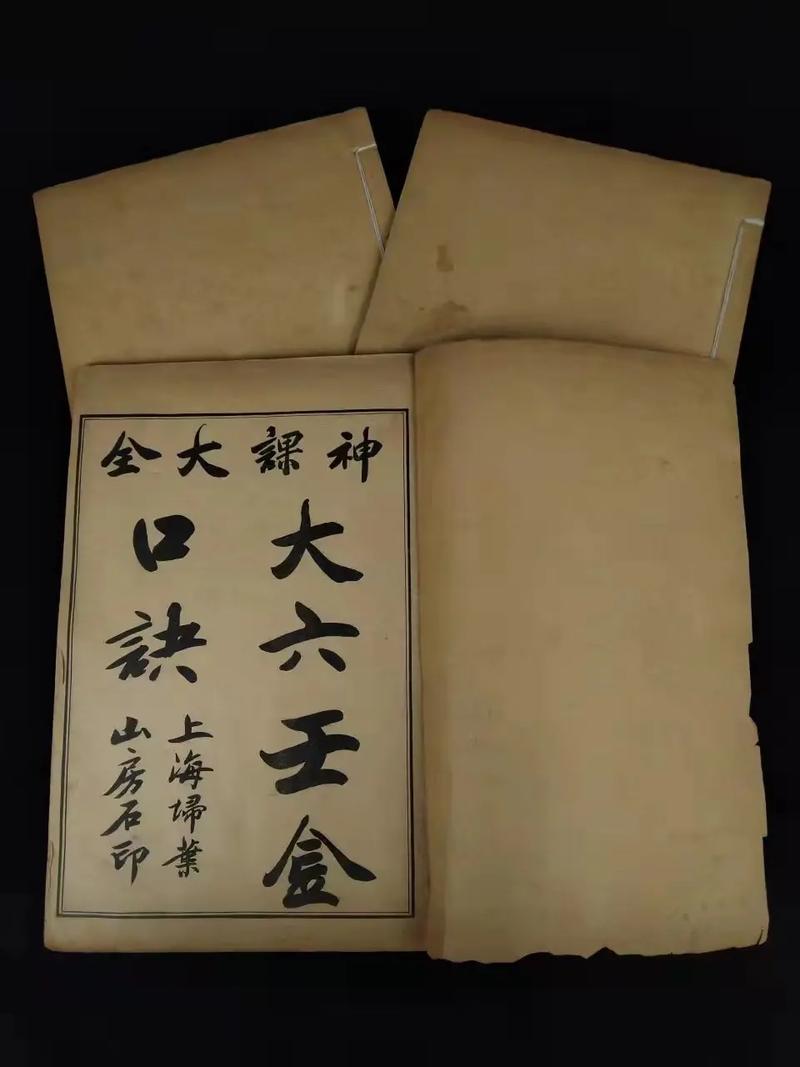 神課大全
大六壬金
口訣
上海埽葉
山房石印